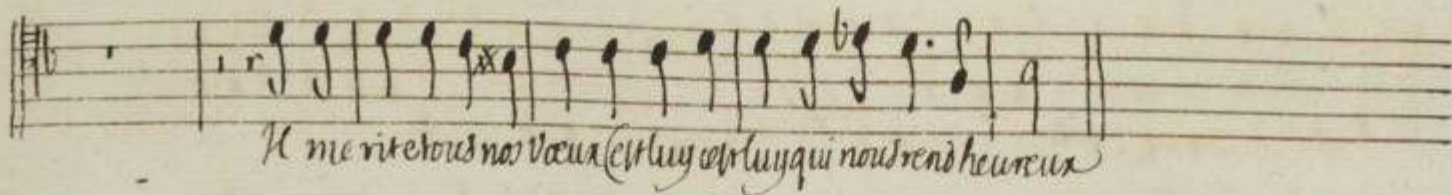 Il merite tous nos vœux C'est luy c'est luy qui nous rend heureux